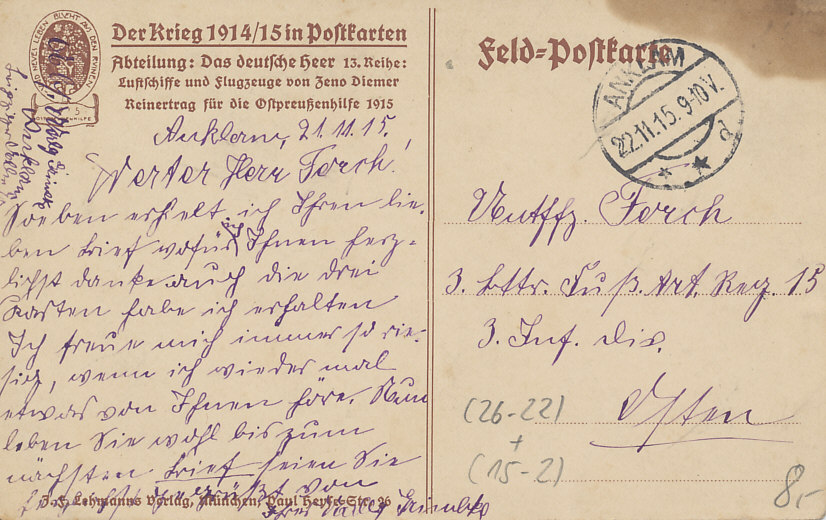 Der Krieg 1914/15 in Postkarten
Abteilung: Das deutsche Heer 13. Reihe:
Luftschiffe und Flugzeuge von Zeno Diemer
Reinertrag für die Ostpreußenhilfe 1915
Anklam, 21.11.15.
Werter Herr Forch!
Soeben erhielt ich Ihren lie-
ben Brief wofür ich Ihnen herz-
lichst danke. auch die drei
Karten habe ich erhalten
Ich freue mich immer so rie-
sig, wenn ich wieder mal
etwas von Ihnen höre. Nun
leben Sie wohl bis zum
nächsten Brief seien Sie
gegrüßt von
Ihrer
J. F. Lehmanns Verlag, München, Paul Heyse-Str. 26
Anklam
Feld-Postkarte
ANKLAM
22.11.15. 9-10 V.
d
Untffz. Forch
3. Bttr. Fuß. Art. Reg 15
3. Inf. Div.
Osten
(26-22)
+
(15-2)
8,-